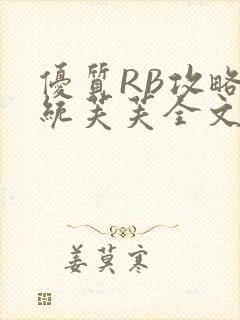 優質RB攻略
統芙芙全文
姜莫寒